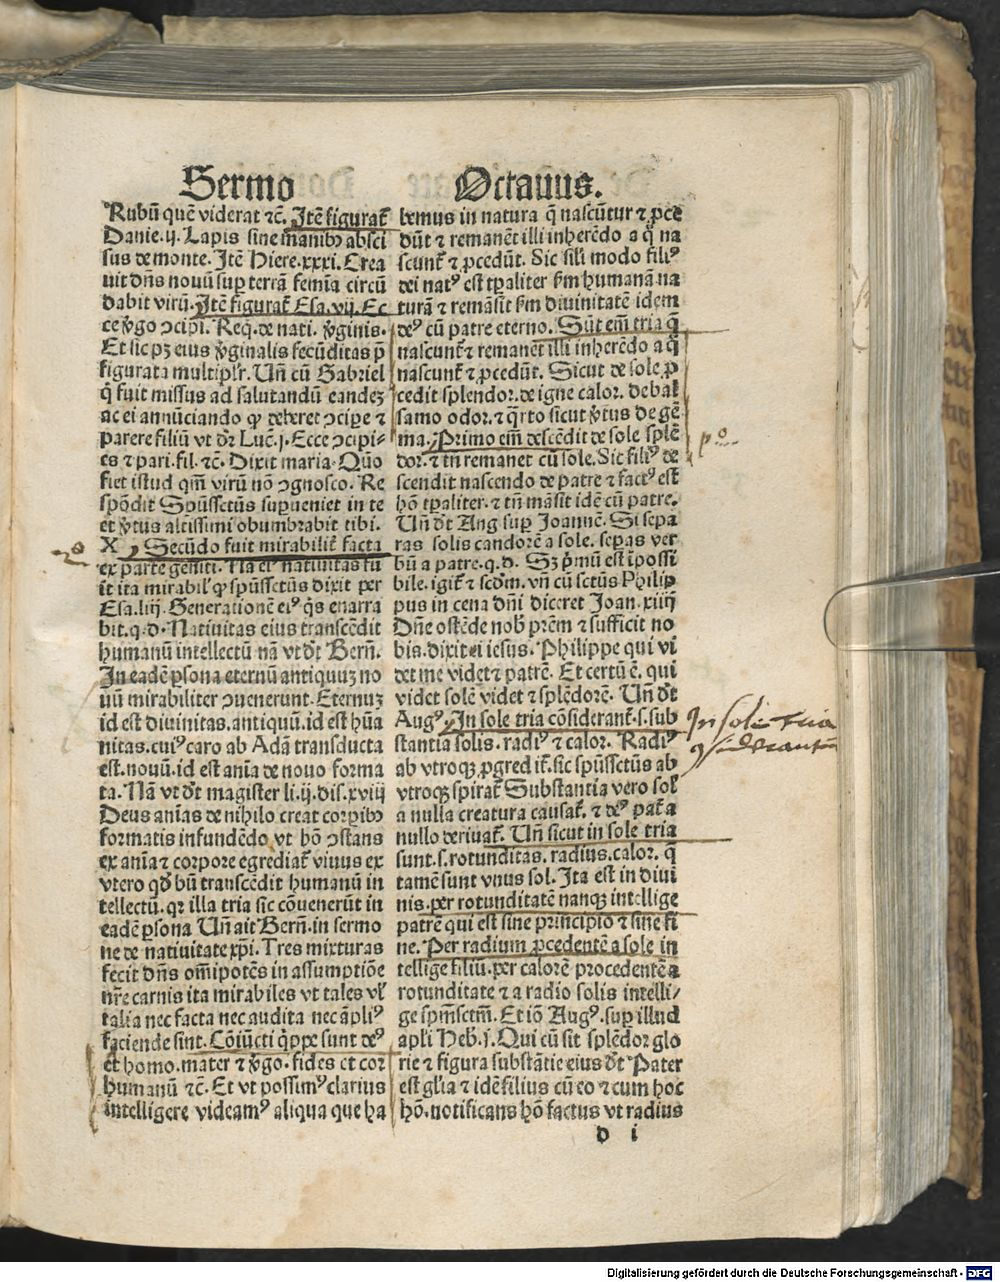 Sermo
Octauus.
Rubū quē viderat ⁊c̄. Itē figurat᷑
Danie.ij. Lapis sine manibꝰ absci
sus de monte. Itē Hiere.xxxi. Crea
uit dn̄s nouū suꝑ terrā femīa circū
dabit virū. Itē figurat᷑ Esa.vij. Ec
ce v̓go ↄcipi. Req. de nati. v̓ginis.
Et sic pꝫ eius v̓ginalis fecūditas p̄
figurata multipl'r. Un̄ cū Gabriel
q̇ fuit missus ad salutandū eandeꝫ
ac ei annūciando ꝙ deberet ↄcipe ⁊
parere filiū vt dr̄ Luc̄.j. Ecce ↄcipi⸗
es ⁊ pari. fil. ⁊c̄. Dixit maria. Quō
fiet istud qm̄ virū nō ↄgnosco. Re
spōdit Spūssctūs suꝑueniet in te
et v̓tus altissimi obumbrabit tibi.
X Secūdo fuit mirabilit᷑ facta
ex parte geniti. Na eiꝰ natiuitas fu
it ita mirabil' ꝙ spūssctūs dixit per
Esa.liij. Generationē eiꝰ q̇s enarra
bit.q.d. Natiuitas eius transcēdit
humanū intellectū nā vt dt̄ Bern̄.
In eadē ꝑsona eternū antiquuꝫ no
uū mirabiliter ↄuenerunt. Eternuꝫ
id est diuinitas. antiquū. id est hūa
nitas. cuiꝰ caro ab Adā transducta
est. nouū. id est anīa de nouo forma
ta. Nā vt dt̄ magister li.ij.dis.xviij
Deus anīas de nihilo creat corꝑibꝰ
formatis infundēdo vt hō ↄstans
ex anīa ⁊ corpore egrediat᷑ viuus ex
vtero qd̄ bn̄ transcēdit humanū in
tellectū. qꝛ illa tria sic cōuenerūt in
eadē ꝑsona Un̄ ait Bern̄. in sermo
ne de natiuitate xp̄i. Tres mixturas
fecit dn̄s om̄ipotēs in assumptiōe
nr̄e carnis ita mirabiles vt tales vl'
talia nec facta nec audita nec āpliꝰ
faciende sint. Cōiūcti q̇ppe sunt deꝰ
et homo. mater ⁊ v̓go. fides et cor
humanū ⁊c̄. Et vt possimꝰ clarius
intelligere videamꝰ aliqua que ha
bemus in natura q̄ nascūtur ⁊ ꝓce
dūt ⁊ remanēt illi inherēdo a q̇ na
scunt᷑ ⁊ ꝓcedūt. Sic sili modo filiꝰ
dei natꝰ est tꝑaliter ẜm humanā na
turā ⁊ remāsit ẜm diuinitatē idem
deꝰ cū patre eterno. Sūt em̄ tria q̄
nascunt᷑ ⁊ remanēt illi inherēdo a q̇
nascunt᷑ ⁊ ꝓcedūt. Sicut de sole ꝓ
cedit splendor. de igne calor. de bal
samo odor. ⁊ q̇rto sicut v̓tus de gē
ma. Primo em̄ descēdit de sole splē
dor. ⁊ tn̄ remanet cū sole. Sic filiꝰ de
scendit nascendo de patre ⁊ factꝰ est
hō tꝑaliter. ⁊ tn̄ māsit idē cū patre.
Un̄ dt̄ Aug suꝑ Joannē. Si sepa
ras solis candorē a sole. sepas ver
bū a patre.q.d. Sꝫ p̓mū est īpossi
bile. igit᷑ ⁊ scd̄m. vn̄ cū sctūs Philip
pus in cena dn̄i diceret Joan.xiiij
Dn̄e ostēde nob̓ prēm ⁊ sufficit no
bis. dixit ei iesus. Philippe qui vi
det me videt ⁊ patrē. Et certū ē. qui
videt solē videt ⁊ splēdorē. Un̄ dt̄
Augꝰ. In sole tria cōsiderant᷑.s.sub
stantia solis. radiꝰ ⁊ calor. Radiꝰ
ab vtroqꝫ ꝓgredit᷑. sic spūssctūs ab
vtroqꝫ spirat᷑ Substantia vero sol'
a nulla creatura causat᷑. ⁊ deꝰ pat᷑ a
nullo deriuat᷑. Un̄ sicut in sole tria
sunt.s.rotunditas. radius. calor. q̄
tamē sunt vnus sol. Ita est in diui
nis. per rotunditatē nanqꝫ intellige
patrē qui est sine principio ⁊ sine fi
ne. Per radium ꝓcedentē a sole in
tellige filiū. per calorē procedentē a
rotunditate ⁊ a radio solis intelli⸗
ge spm̄sctm̄. Et iō Augꝰ. suꝑ illud
apli Heb̓.j. Qui cū sit splēdor glo
rie ⁊ figura substātie eius dt̄ Pater
est gl'ia ⁊ idē filius cū eo ⁊ cum hoc
hō. notificans hō factus vt radius
d i
2º
pº
In sole tria
ↄsiderantur
Digitalisierung gefördert durch die Deutsche Forschungsgemeinschaft - DFG